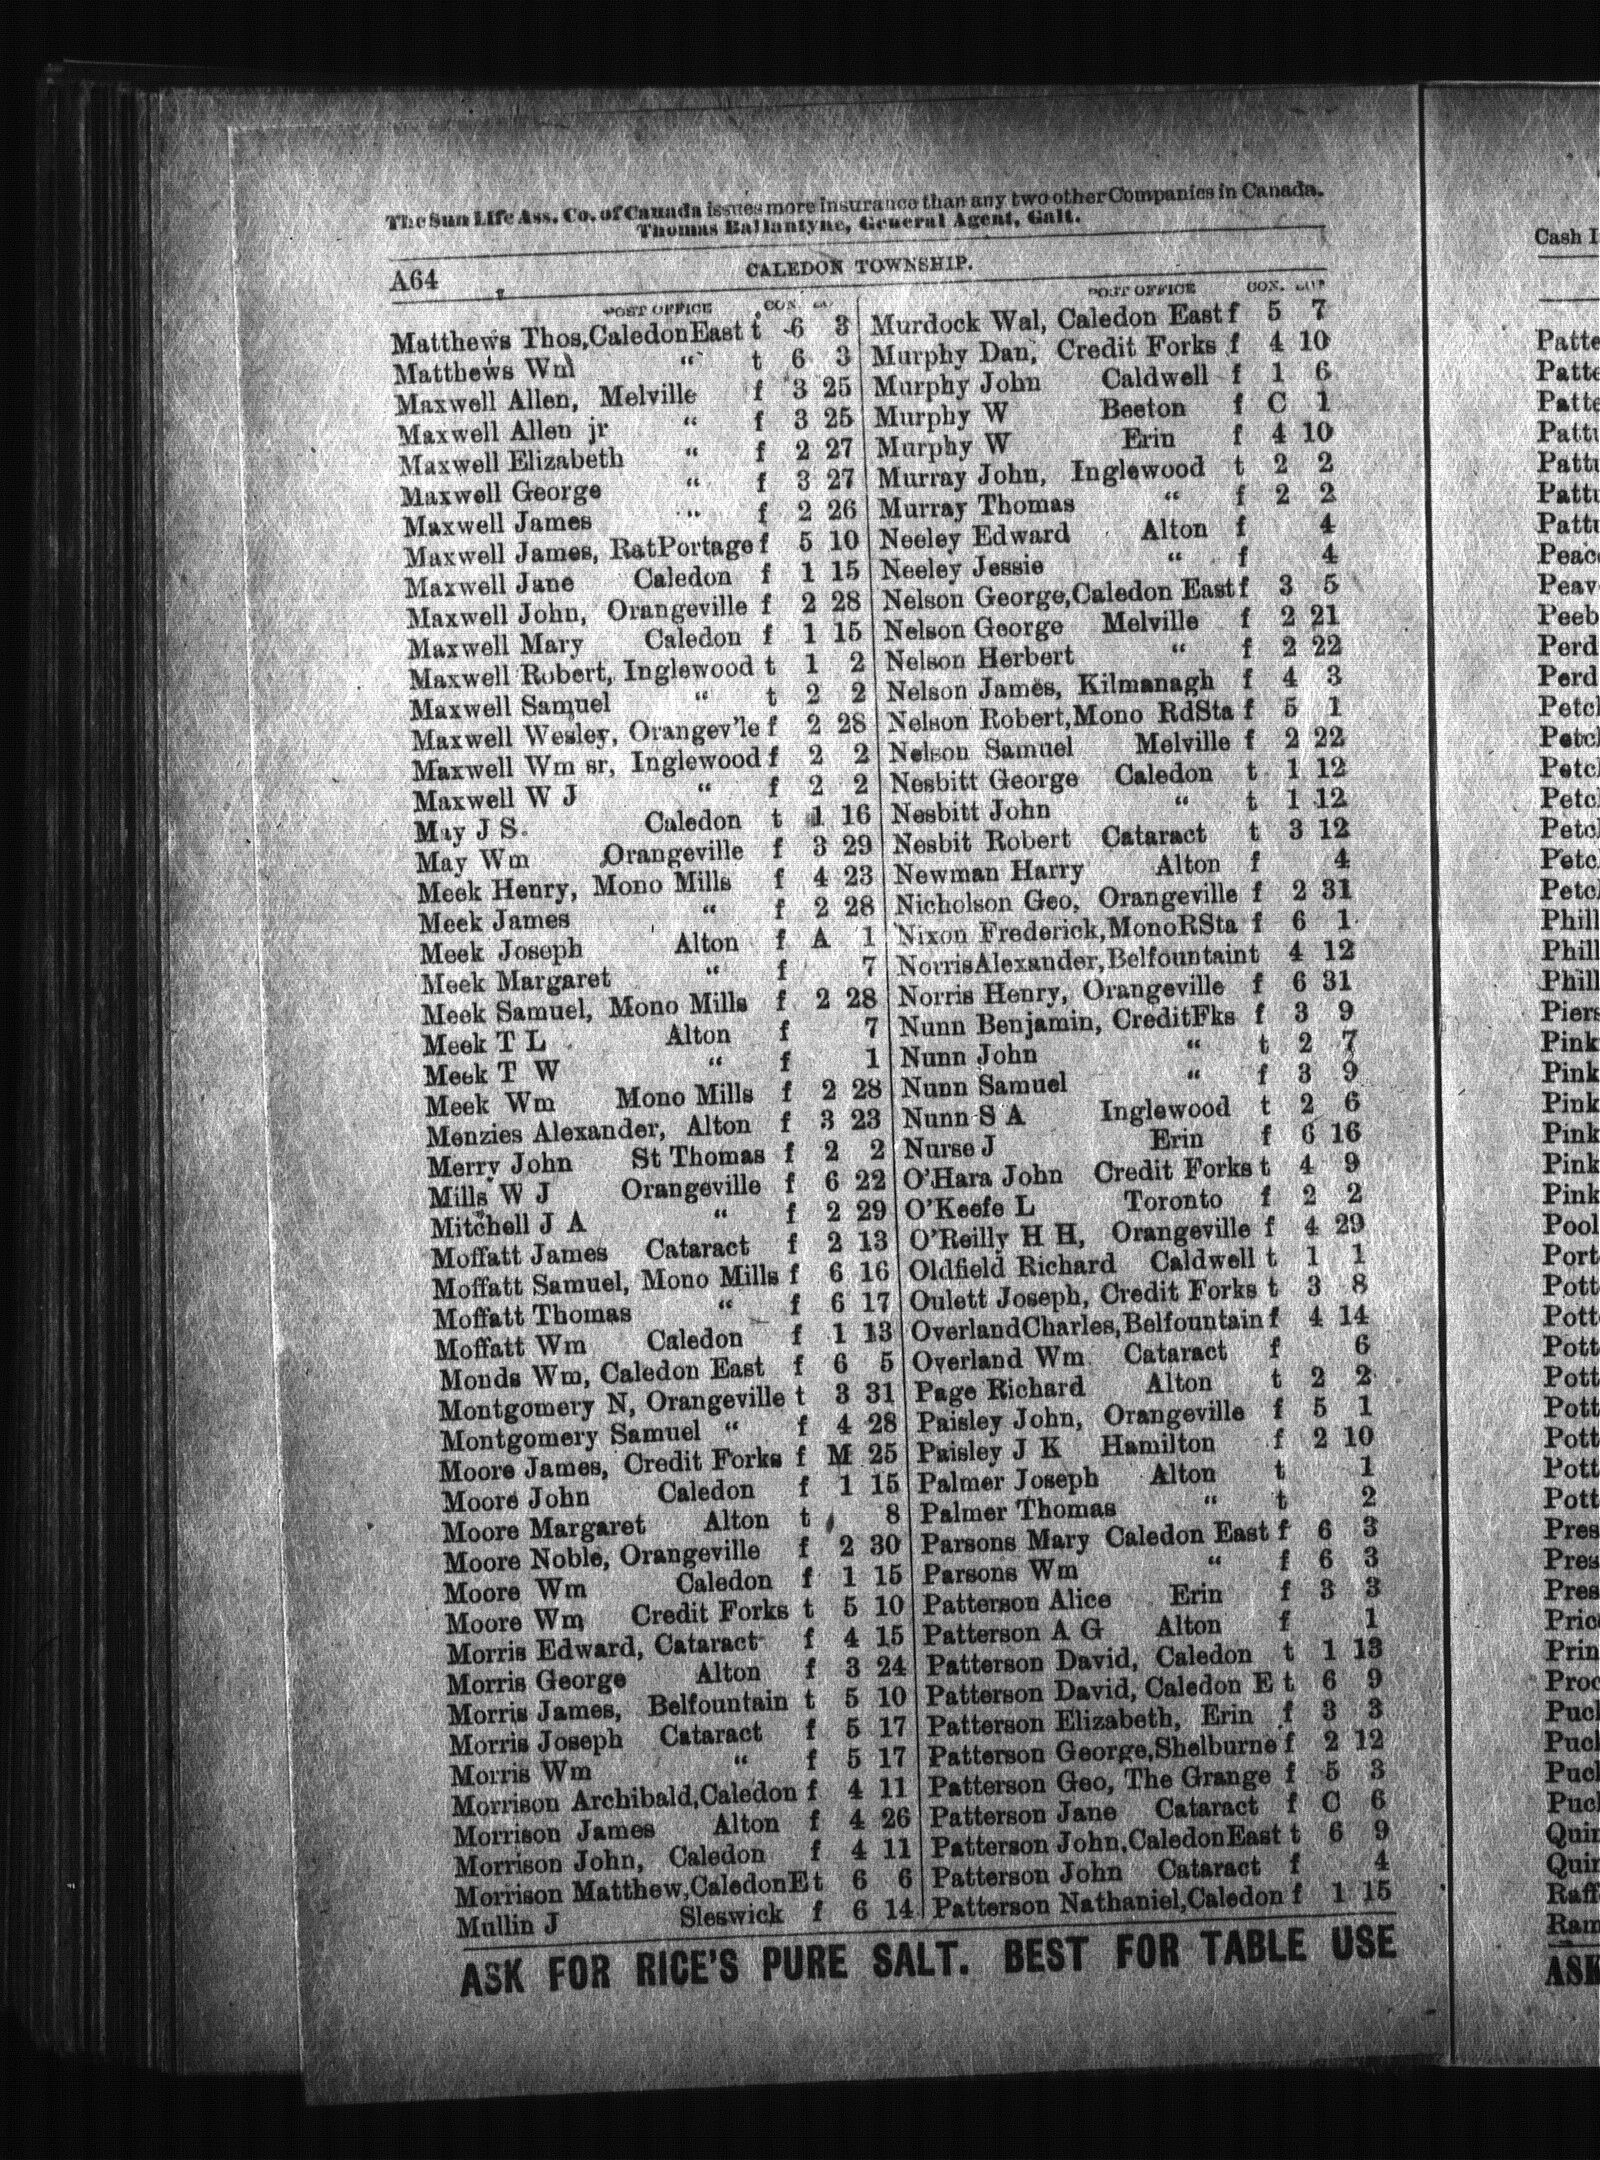 The Sun Life Ass. Co. of Canada issues more Insurance than any two other Companies in Canada.
Thomas Ballantyne, General Agent, Galt.
A64
CALEDON TOWNSHIP.
POST OFFICE CON. LOT
Matthews Thos, Caledon East t 6 3
Matthews Wm “ t 6 3
Maxwell Allen, Melville f 3 25
Maxwell Allen jr “ f 3 25
Maxwell Elizabeth “ f 2 27
Maxwell George “ f 3 27
Maxwell James “ f 2 26
Maxwell James, RatPortage f 5 10
Maxwell Jane Caledon f 1 15
Maxwell John, Orangeville f 2 28
Maxwell Mary Caledon f 1 15
Maxwell Robert, Inglewood t 1 2
Maxwell Samuel “ t 2 2
Maxwell Wesley, Orangev'le f 2 28
Maxwell Wm sr, Inglewood f 2 2
Maxwell W J “ f 2 2
May J S. Caledon t 1 16
May Wm Orangeville f 3 29
Meek Henry, Mono Mills f 4 23
Meek James “ f 2 28
Meek Joseph Alton f A 1
Meek Margaret “ f 7
Meek Samuel, Mono Mills f 2 28
Meek T L Alton f 7
Meek T W “ f 1
Meek Wm Mono Mills f 2 28
Menzies Alexander, Alton f 3 23
Merry John St Thomas f 2 2
Mills W J Orangeville f 6 22
Mitchell J A “ f 2 29
Moffatt James Cataract f 2 13
Moffatt Samuel, Mono Mills f 6 16
Moffatt Thomas “ f 6 17
Moffatt Wm Caledon f 1 13
Monds Wm, Caledon East f 6 5
Montgomery N, Orangeville t 3 31
Montgomery Samuel “ f 4 28
Moore James, Credit Forks f M 25
Moore John Caledon f 1 15
Moore Margaret Alton t 8
Moore Noble, Orangeville f 2 30
Moore Wm Caledon f 1 15
Moore Wm Credit Forks t 5 10
Morris Edward, Cataract f 4 15
Morris George Alton f 3 24
Morris James, Belfountain t 5 10
Morris Joseph Cataract f 5 17
Morris Wm “ f 5 17
Morrison Archibald, Caledon f 4 11
Morrison James Alton f 4 26
Morrison John, Caledon f 4 11
Morrison Matthew, CaledonE t 6 6
Mullin J Sleswick f 6 14
POST OFFICE CON. LOT
Murdock Wal, Caledon East f 5 7
Murphy Dan, Credit Forks f 4 10
Murphy John Caldwell f 1 6
Murphy W Beeton f C 1
Murphy W Erin f 4 10
Murray John, Inglewood t 2 2
Murray Thomas “ f 2 2
Neeley Edward Alton f 4
Neeley Jessie “ f 4
Nelson George, Caledon East f 3 5
Nelson George Melville f 2 21
Nelson Herbert “ f 2 22
Nelson James, Kilmanagh f 4 3
Nelson Robert, Mono RdSta f 5 1
Nelson Samuel Melville f 2 22
Nesbitt George Caledon t 1 12
Nesbitt John “ t 1 12
Nesbit Robert Cataract t 3 12
Newman Harry Alton f 4
Nicholson Geo, Orangeville f 2 31
Nixon Frederick, MonoRSta f 6 1
NorrisAlexander, Belfountain t 4 12
Norris Henry, Orangeville f 6 31
Nunn Benjamin, CreditFks f 3 9
Nunn John “ t 2 7
Nunn Samuel “ f 3 9
Nunn S A Inglewood t 2 6
Nurse J Erin f 6 16
O'Hara John Credit Forks t 4 9
O'Keefe L Toronto f 2 2
O'Reilly H H, Orangeville f 4 29
Oldfield Richard Caldwell t 1 1
Oulett Joseph, Credit Forks t 3 8
OverlandCharles, Belfountain f 4 14
Overland Wm Cataract f 6
Page Richard Alton t 2 2
Paisley John, Orangeville f 5 1
Paisley J K Hamilton f 2 10
Palmer Joseph Alton t 1
Palmer Thomas “ t 2
Parsons Mary Caledon East f 6 3
Parsons Wm “ f 6 3
Patterson Alice Erin f 3 3
Patterson A G Alton f 1
Patterson David, Caledon t 1 13
Patterson David, Caledon E t 6 9
Patterson Elizabeth, Erin f 3 3
Patterson George, Shelburne f 2 12
Patterson Geo, The Grange f 5 3
Patterson Jane Cataract f C 6
Patterson John, CaledonEast t 6 9
Patterson John Cataract f 4
Patterson Nathaniel, Caledon f 1 15
ASK FOR RICE'S PURE SALT. BEST FOR TABLE USE
Cash I
Patte
Patte
Patte
Pattu
Pattu
Pattu
Pattu
Peac
Peav
Peeb
Perd
Perd
Petcl
Petcl
Petcl
Petcl
Petcl
Petc
Petcl
Phill
Phill
Phill
Piers
Pink
Pink
Pink
Pink
Pink
Pink
Pool
Port
Pott
Pott
Pott
Pott
Pott
Pott
Pott
Pott
Pres
Pres
Pres
Pric
Prin
Proc
Puc
Puc
Puc
Puc
Quin
Quin
Raff
Ram
ASK